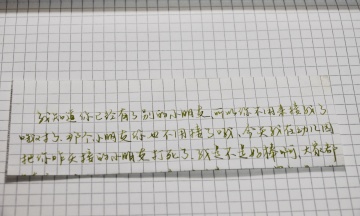 我知道你已经有了别的小朋友 所以你不用来接我了
哦对了 那个小朋友你也不用接了哦,今天我在幼儿园
把你昨天接的小朋友打死了,我是不是好棒啊,大家都